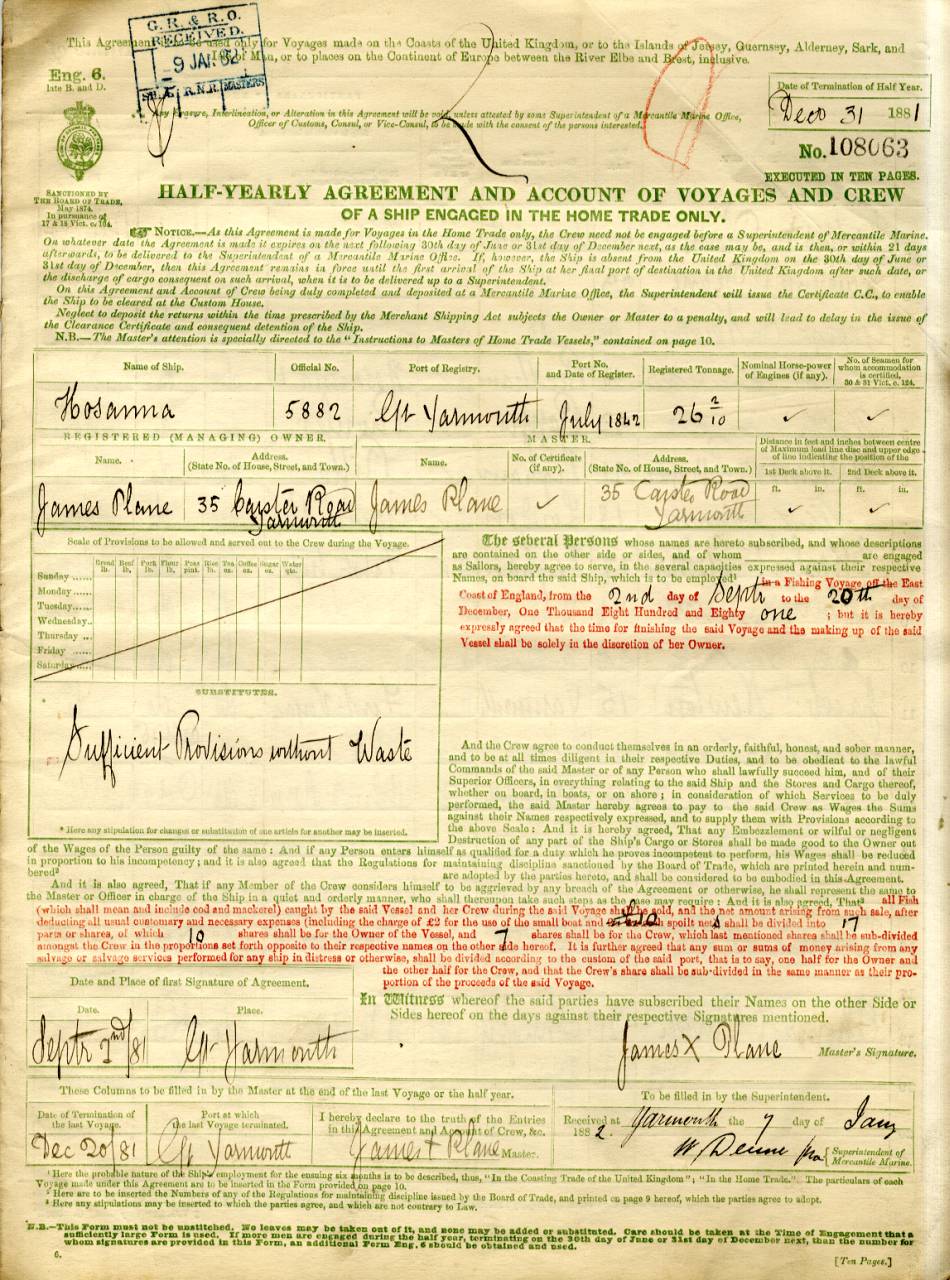 G. R. & R. O.
RECEIVED.
9 JAN 82
R.N.R. MASTERS
This Agreement used only for Voyages made on the Coasts of the United Kingdom, or to the Islands of Jersey, Guernsey, Alderney, Sark, and
Man, or to places on the Continent of Europe between the River Elbe and Brest, inclusive.
Eng. 6.
late B. and D.
Any Erasure, Interlineation, or Alteration in this Agreement will be void, unless attested by some Superintendent of a Mercantile Marine Office,
Officer of Customs, Consul, or Vice-Consul, to be made with the consent of the persons interested.
Date of Termination of Half Year.
Decr 31 1881
No. 108063
EXECUTED IN TEN PAGES.
SANCTIONED BY
THE BOARD OF TRADE,
May 1874.
In pursuance of
17 & 18 Vict. c. 104.
HALF-YEARLY AGREEMENT AND ACCOUNT OF VOYAGES AND CREW
OF A SHIP ENGAGED IN THE HOME TRADE ONLY.
NOTICE.—As this Agreement is made for Voyages in the Home Trade only, the Crew need not be engaged before a Superintendent of Mercantile Marine.
On whatever date the Agreement is made it expires on the next following 30th day of June or 31st day of December next, as the case may be, and is then, or within 21 days
afterwards, to be delivered to the Superintendent of a Mercantile Marine Office. If, however, the Ship is absent from the United Kingdom on the 30th day of June or
31st day of December, then this Agreement remains in force until the first arrival of the Ship at her final port of destination in the United Kingdom after such date, or
the discharge of cargo consequent on such arrival, when it is to be delivered up to a Superintendent.
On this Agreement and Account of Crew being duly completed and deposited at a Mercantile Marine Office, the Superintendent will issue the Certificate C.C., to enable
the Ship to be cleared at the Custom House.
Neglect to deposit the returns within the time prescribed by the Merchant Shipping Act subjects the Owner or Master to a penalty, and will lead to delay in the issue of
the Clearance Certificate and consequent detention of the Ship.
N.B.—The Master's attention is specially directed to the "Instructions to Masters of Home Trade Vessels," contained on page 10.
Name of Ship. Official No. Port of Registry. Port No. and Date of Register. Registered Tonnage. Nominal Horse-power of Engines (if any). No. of Seamen for whom accommodation is certified, 30 & 31 Vict. c. 124.
Hosanna 5882 Gt Yarmouth July 1842 26 2/10 ✓ ✓
REGISTERED (MANAGING) OWNER. MASTER. Distance in feet and inches between centre of Maximum load line disc and upper edge of line indicating the position of the
Name. Address. (State No. of House, Street, and Town.) Name. No. of Certificate (if any). Address. (State No. of House, Street, and Town.) 1st Deck above it. 2nd Deck above it.
ft. in. ft. in.
James Plane 35 Caister Road Yarmouth James Plane ✓ 35 Caister Road Yarmouth ✓ ✓
Scale of Provisions to be allowed and served out to the Crew during the Voyage.
Bread lb. Beef lb. Pork lb. Flour lb. Peas pint. Rice lb. Tea oz. Coffee oz. Sugar oz. Water qts.
Sunday
Monday
Tuesday
Wednesday
Thursday
Friday
Saturday
SUBSTITUTES.
Sufficient Provisions without Waste
* Here any stipulation for changes or substitution of one article for another may be inserted.
The several Persons whose names are hereto subscribed, and whose descriptions
are contained on the other side or sides, and of whom are engaged
as Sailors, hereby agree to serve, in the several capacities expressed against their respective
Names, on board the said Ship, which is to be employed¹ in a Fishing Voyage off the East
Coast of England, from the 2nd day of Septr to the 20th day of
December, One Thousand Eight Hundred and Eighty one ; but it is hereby
expressly agreed that the time for finishing the said Voyage and the making up of the said
Vessel shall be solely in the discretion of her Owner.
And the Crew agree to conduct themselves in an orderly, faithful, honest, and sober manner,
and to be at all times diligent in their respective Duties, and to be obedient to the lawful
Commands of the said Master or of any Person who shall lawfully succeed him, and of their
Superior Officers, in everything relating to the said Ship and the Stores and Cargo thereof,
whether on board, in boats, or on shore; in consideration of which Services to be duly
performed, the said Master hereby agrees to pay to the said Crew as Wages the Sums
against their Names respectively expressed, and to supply them with Provisions according to
the above Scale: And it is hereby agreed, That any Embezzlement or wilful or negligent
Destruction of any part of the Ship's Cargo or Stores shall be made good to the Owner out
of the Wages of the Person guilty of the same: And if any Person enters himself as qualified for a duty which he proves incompetent to perform, his Wages shall be reduced
in proportion to his incompetency; and it is also agreed that the Regulations for maintaining discipline sanctioned by the Board of Trade, which are printed herein and num-
bered² are adopted by the parties hereto, and shall be considered to be embodied in this Agreement.
And it is also agreed, That if any Member of the Crew considers himself to be aggrieved by any breach of the Agreement or otherwise, he shall represent the same to
the Master or Officer in charge of the Ship in a quiet and orderly manner, who shall thereupon take such steps as the case may require: And it is also agreed, That³ all Fish
(which shall mean and include cod and mackerel) caught by the said Vessel and her Crew during the said Voyage shall be sold, and the net amount arising from such sale, after
deducting all usual customary and necessary expenses (including the charge of £2 for the use of the small boat and spoilt nets shall be divided into 17
parts or shares, of which 10 shares shall be for the Owner of the Vessel, and 7 shares shall be for the Crew, which last mentioned shares shall be sub-divided
amongst the Crew in the proportions set forth opposite to their respective names on the other side hereof. It is further agreed that any sum or sums of money arising from any
salvage or salvage services performed for any ship in distress or otherwise, shall be divided according to the custom of the said port, that is to say, one half for the Owner and
the other half for the Crew, and that the Crew's share shall be sub-divided in the same manner as their pro-
portion of the proceeds of the said Voyage.
Date and Place of first Signature of Agreement.
Date. Place.
Septr 2nd/81 Gt Yarmouth
In Witness whereof the said parties have subscribed their Names on the other Side or
Sides hereof on the days against their respective Signatures mentioned.
James X Plane Master's Signature.
These Columns to be filled in by the Master at the end of the last Voyage or the half year. To be filled in by the Superintendent.
Date of Termination of the last Voyage. Port at which the last Voyage terminated. I hereby declare to the truth of the Entries in this Agreement and Account of Crew, &c.
Dec 20/81 Gt Yarmouth James + Plane Master.
Received at Yarmouth the 7 day of Jany
1882. W Denne Superintendent of Mercantile Marine.
¹ Here the probable nature of the Ship's employment for the ensuing six months is to be described, thus, "In the Coasting Trade of the United Kingdom"; "In the Home Trade." The particulars of each
Voyage made under this Agreement are to be inserted in the Form provided on page 10.
² Here are to be inserted the Numbers of any of the Regulations for maintaining discipline issued by the Board of Trade, and printed on page 9 hereof, which the parties agree to adopt.
³ Here any stipulations may be inserted to which the parties agree, and which are not contrary to Law.
N.B.—This Form must not be unstitched. No leaves may be taken out of it, and none may be added or substituted. Care should be taken at the Time of Engagement that a
sufficiently large Form is used. If more men are engaged during the half year, terminating on the 30th day of June or 31st day of December next, than the number for
whom signatures are provided in this Form, an additional Form Eng. 6 should be obtained and used.
6.
[Ten Pages.]